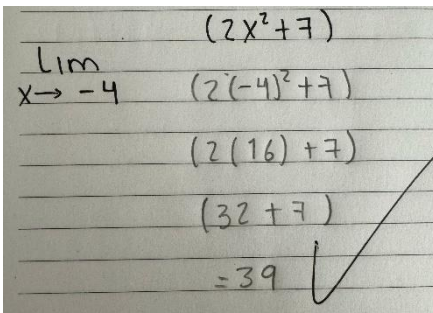 (2x²+7)
Lim
x→ -4 (2(-4)²+7)
(2(16)+7)
(32+7)
=39